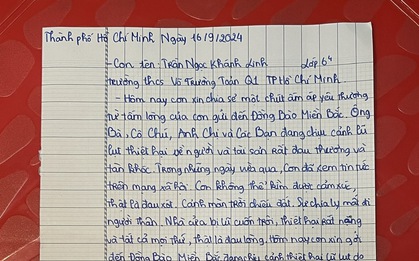 Thành phố Hồ Chí Minh Ngày 16/9/2024
- Con tên: Trần Ngọc Khánh Linh lớp 6⁴
trường thcs Võ Trường Toản Q1 TP Hồ Chí Minh.
- Hôm nay con xin chia sẻ một chút ấm áp yêu thương
từ tấm lòng của con gửi đến Đồng Bào Miền Bắc. Ông
Bà, Cô Chú, Anh Chị và Các Bạn đang chịu cảnh lũ
lụt thiệt hại về người và tài sản rất đau thương và
tàn khốc. Trong những ngày vừa qua, Con đã xem tin tức
trên mạng xã hội. Con không thể kìm được cảm xúc,
thật là đau xót. Cảnh màn trời chiếu đất. Sự chia ly mất đi
người thân. Nhà cửa bị lũ cuốn trôi, thiệt hại rất nặng
và tất cả mọi thứ, thật là đau lòng. Hôm nay con xin gởi
đến Đồng Bào Miền Bắc đang chịu cảnh thiệt hại lũ lụt do